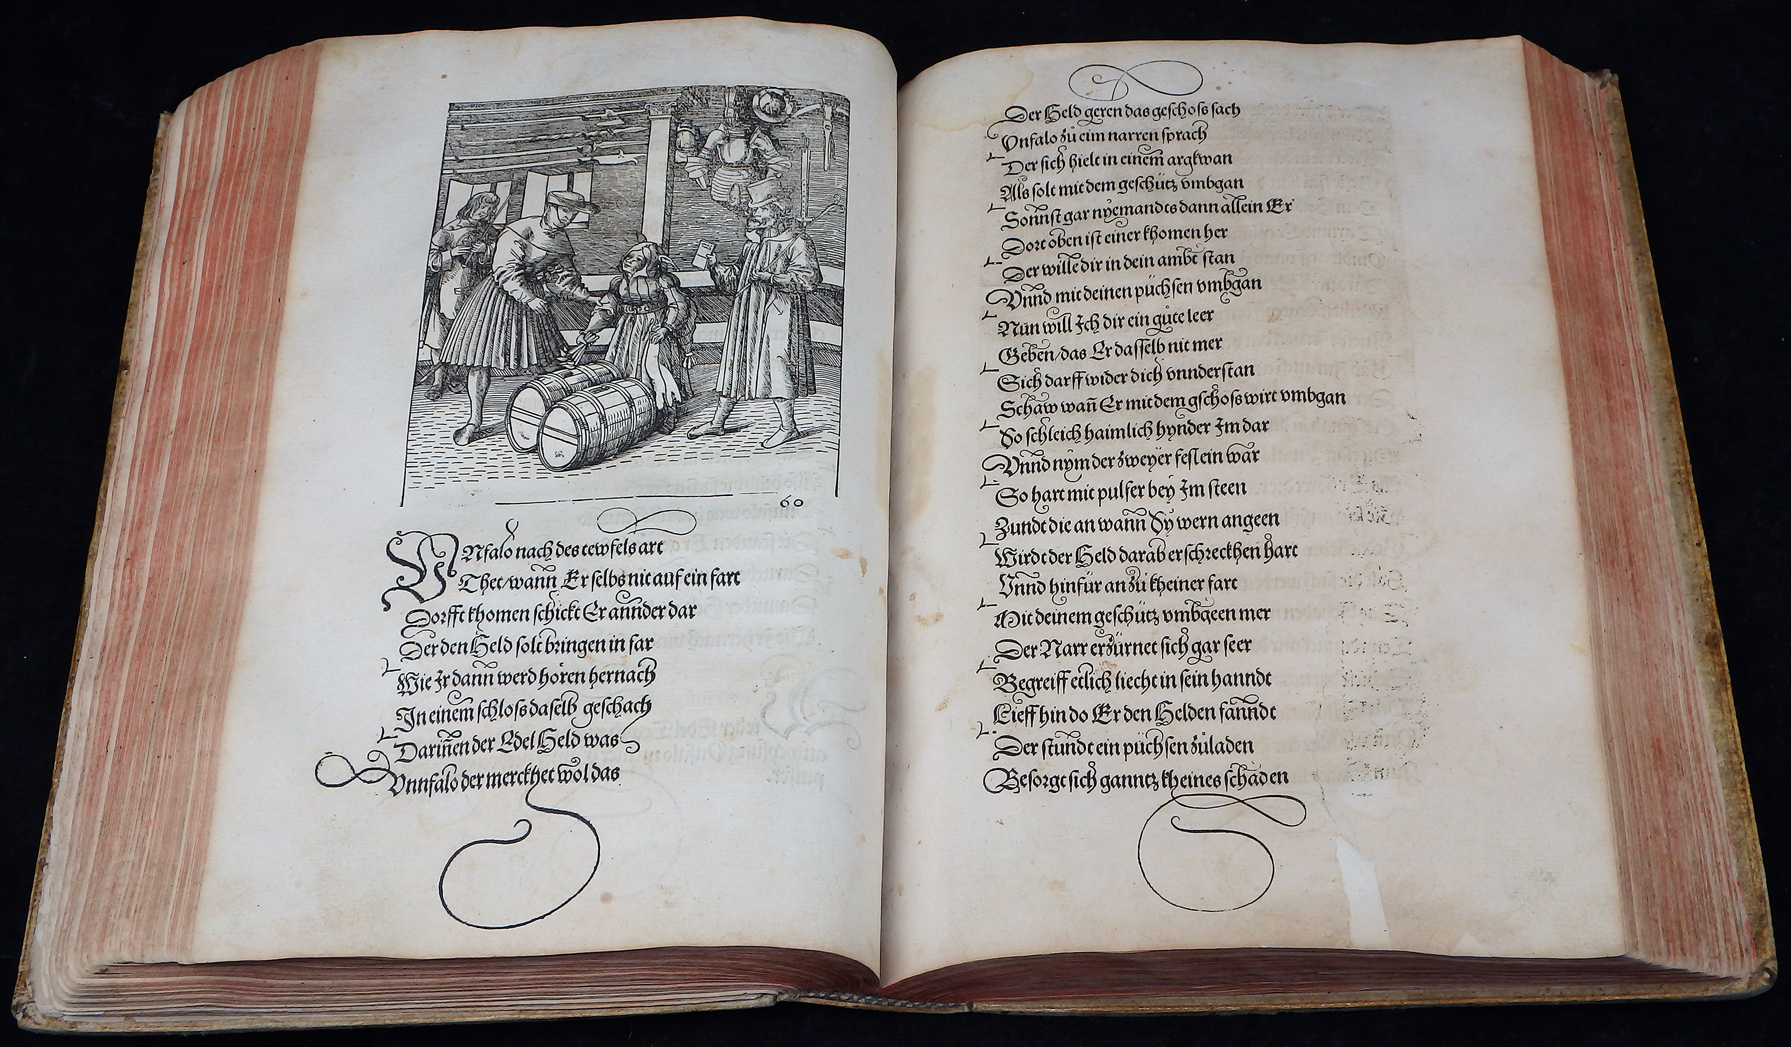 60
VNfalo nach des tewfels art
Thet/wann Er selbs nit auf ein fart
Dorfft khomen schickt Er annder dar
Der den Held solt bringen in far
Wie Jr dann werd hören hernach
Jn einem schloss daselb geschach
Darinnen der Edel Held was
Vnnfalo der merckhet wol das
Der Held geren das geschoss sach
Vnfalo zů eim narren sprach
Der sich hielt in einem argkwan
Als solt mit dem geschütz vmbgan
Sonnst gar nyemandts dann allein Er
Dort oben ist einer khomen her
Der wille dir in dein ambt stan
Vnnd mit deinen püchsen vmbgan
Nun will Jch dir ein gůte leer
Geben/das Er dasselb nit mer
Sich darff wider dich vnnderstan
Schaw wañ Er mit dem gschoss wirt vmbgan
So schleich haimlich hynder Jm dar
Vnnd nym der zweyer feslein war
So hart mit pulfer bey Jm steen
Zundt die an wann Sy wern angeen
Wirdt der Held darab erschreckhen hart
Vnnd hinfür an zů kheiner fart
Mit deinem geschütz vmbgeen mer
Der Narr erzürnet sich gar seer
Begreiff etlich liecht in sein hanndt
Lieff hin do Er den Helden fanndt
Der stůndt ein püchsen zůladen
Besorgt sich ganntz kheines schaden